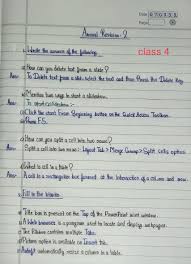 Date
Page
Annual Revision - 2
class 4
1. Write the answers of the following.
a) How can you delete text from a slide?
Ans: To Delete text from a slide, select the text and then Press the Delete Key.
b) Mention two ways to start a slideshow.
Ans: To start a slideshow :-
Click the start From Beginning button on the Quick Access Toolbar.
Press F5.
c) How can you split a cell into two rows?
Ans: Split a cell into two rows:- Layout Tab > Merge Group > Split cells option.
d) What is a cell in a table?
Ans: A cell is a rectangular box formed at the Intersection of a column and row.
2. Fill in the blanks.
a) Title bar is present on the Top of the PowerPoint 2010 window.
b) A Web browser is a program used to locate and display webpages.
c) The Ribbon contains multiple Tabs.
d) Picture option is available on Insert tab.
e) Autofit automatically resize a column in a table.